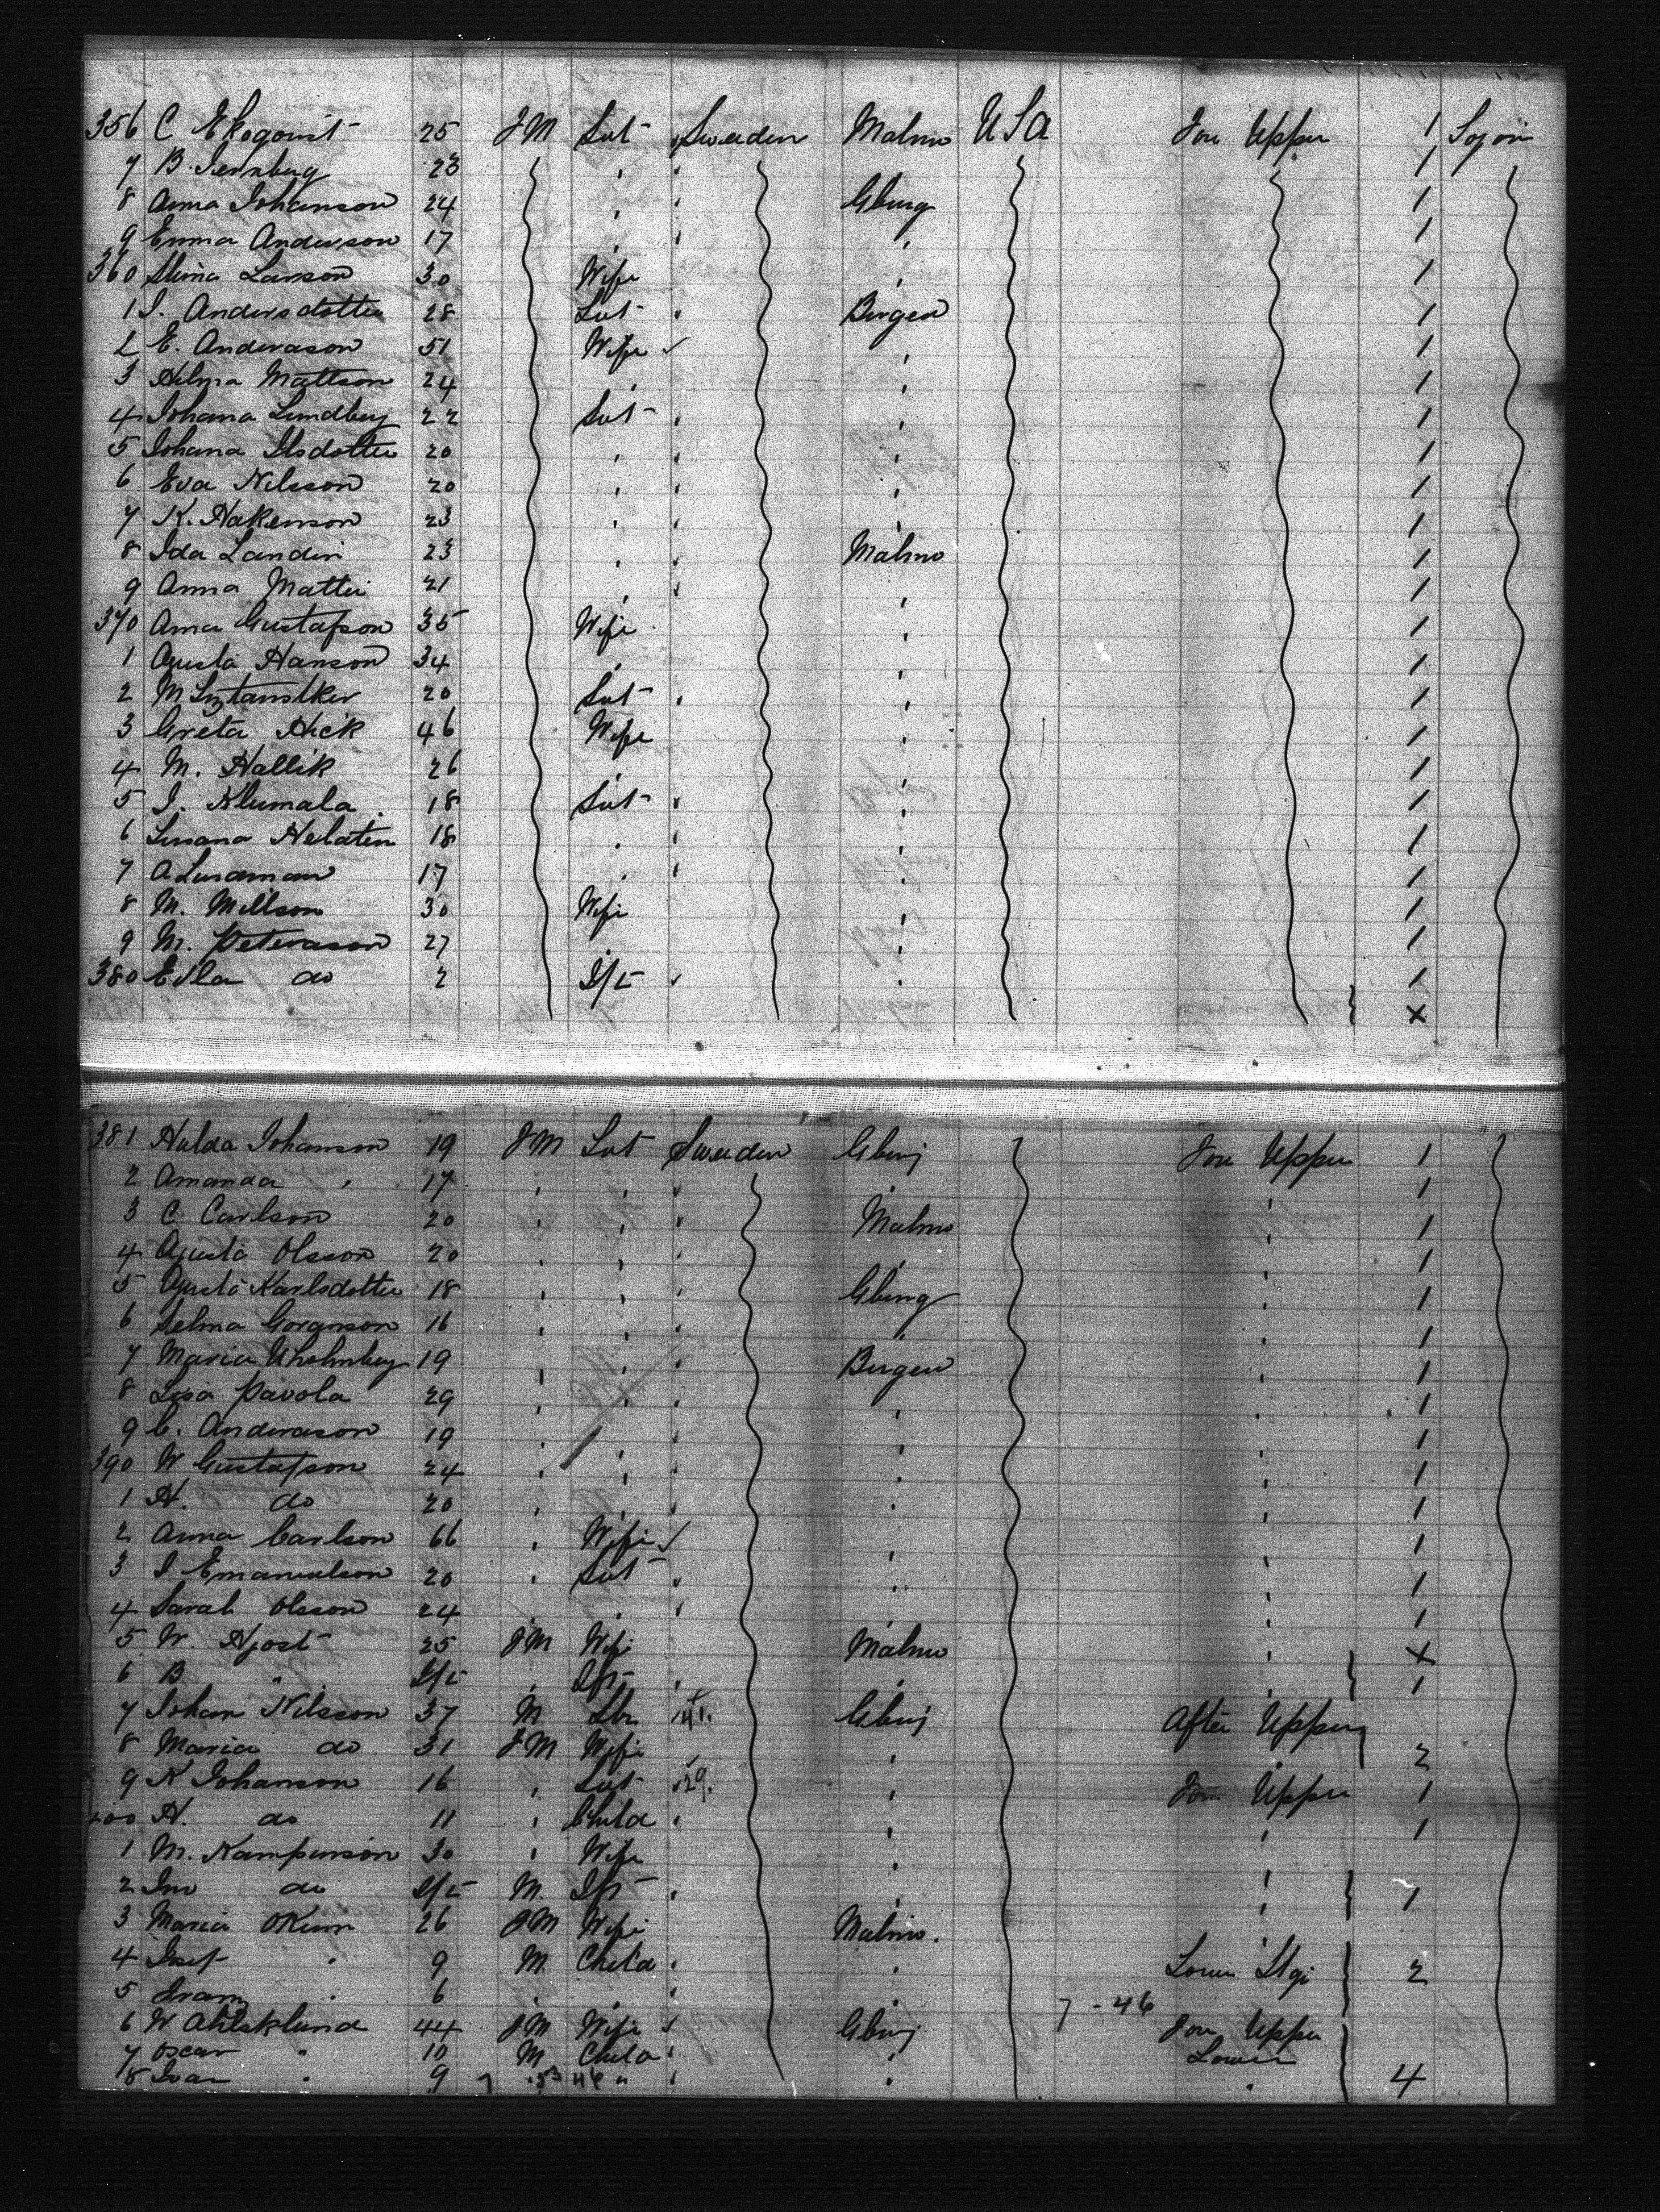 356 C Ekoquist 25 FM Svt Sweden Malmo USA For Upper 1 Sojon
7 B. Ternberg 23 " " 1
8 Anna Johanson 24 " " Gburg 1
9 Emma Anderson 17 " " " 1
360 Stina Larson 30 Wife " 1
1 I. Andersdotter 28 Svt " Bergen 1
2 E. Anderason 51 Wife " 1
3 Hilma Mattson 24 " " 1
4 Johana Lundberg 22 Svt " " 1
5 Johana Ilsdotter 20 " " " 1
6 Eva Nilsson 20 " " " 1
7 K. Hakenson 23 " " " 1
8 Ida Landin 23 " " Malmo 1
9 Anna Matter 21 " " " 1
370 Anna Gustafson 35 Wife " 1
1 Agusta Hanson 34 " " 1
2 M 20 Svt " " 1
3 Greta Hick 46 Wife " 1
4 M. Hallik 26 " " 1
5 I. Klumala 18 Svt " " 1
6 Susana Helaten 18 " " " 1
7 A Lindman 17 " " " 1
8 M. Millson 30 Wife " 1
9 M. Peterason 27 " " 1
380 Edla do 2 Ift " " 1
x
381 Hulda Johanson 19 FM Svt Sweden Gburg For Upper 1
2 Amanda " 17 " " " " " 1
3 C Carlson 20 " " " Malmo " 1
4 Agusta Olsson 20 " " " " " 1
5 Agusta Karlsdotter 18 " " " Gburg " 1
6 Selma Gorgnson 16 " " " " " 1
7 Maria 19 " " " Bergen " 1
8 Lisa Pavola 29 " " " " " 1
9 C. Anderason 19 " " " " " 1
390 W Gustafson 24 " " " " " 1
1 H. do 20 " " " " " 1
2 Anna Carlson 66 " Wife " " 1
3 I Emanuelson 20 " Svt " " " 1
4 Sarah Olsson 24 " " " " 1
5 W. Hjost 25 FM Wife Malmo " x
6 B " Ift " Ift " " " 1
7 Johan Nilsson 37 M Lbr 141. Gburg After Upper
8 Maria do 31 FM Wife " " 2
9 K Johanson 16 " Svt 129. " For Upper 1
400 H. do 11 " Child " " " 1
1 M. Kamperson 30 " Wife " "
2 Ino do Ift M Ift " " " 1
3 Maria 26 FM Wife Malmo. "
4 Josef " 9 M Child " " Lower Stge 2
5 " 6 " " " " 7 - 46
6 W Ahlsklund 44 FM Wife Gburg For Upper
7 Oscar " 10 M Child " " Lower
8 Ivar " 9 " " " " 4